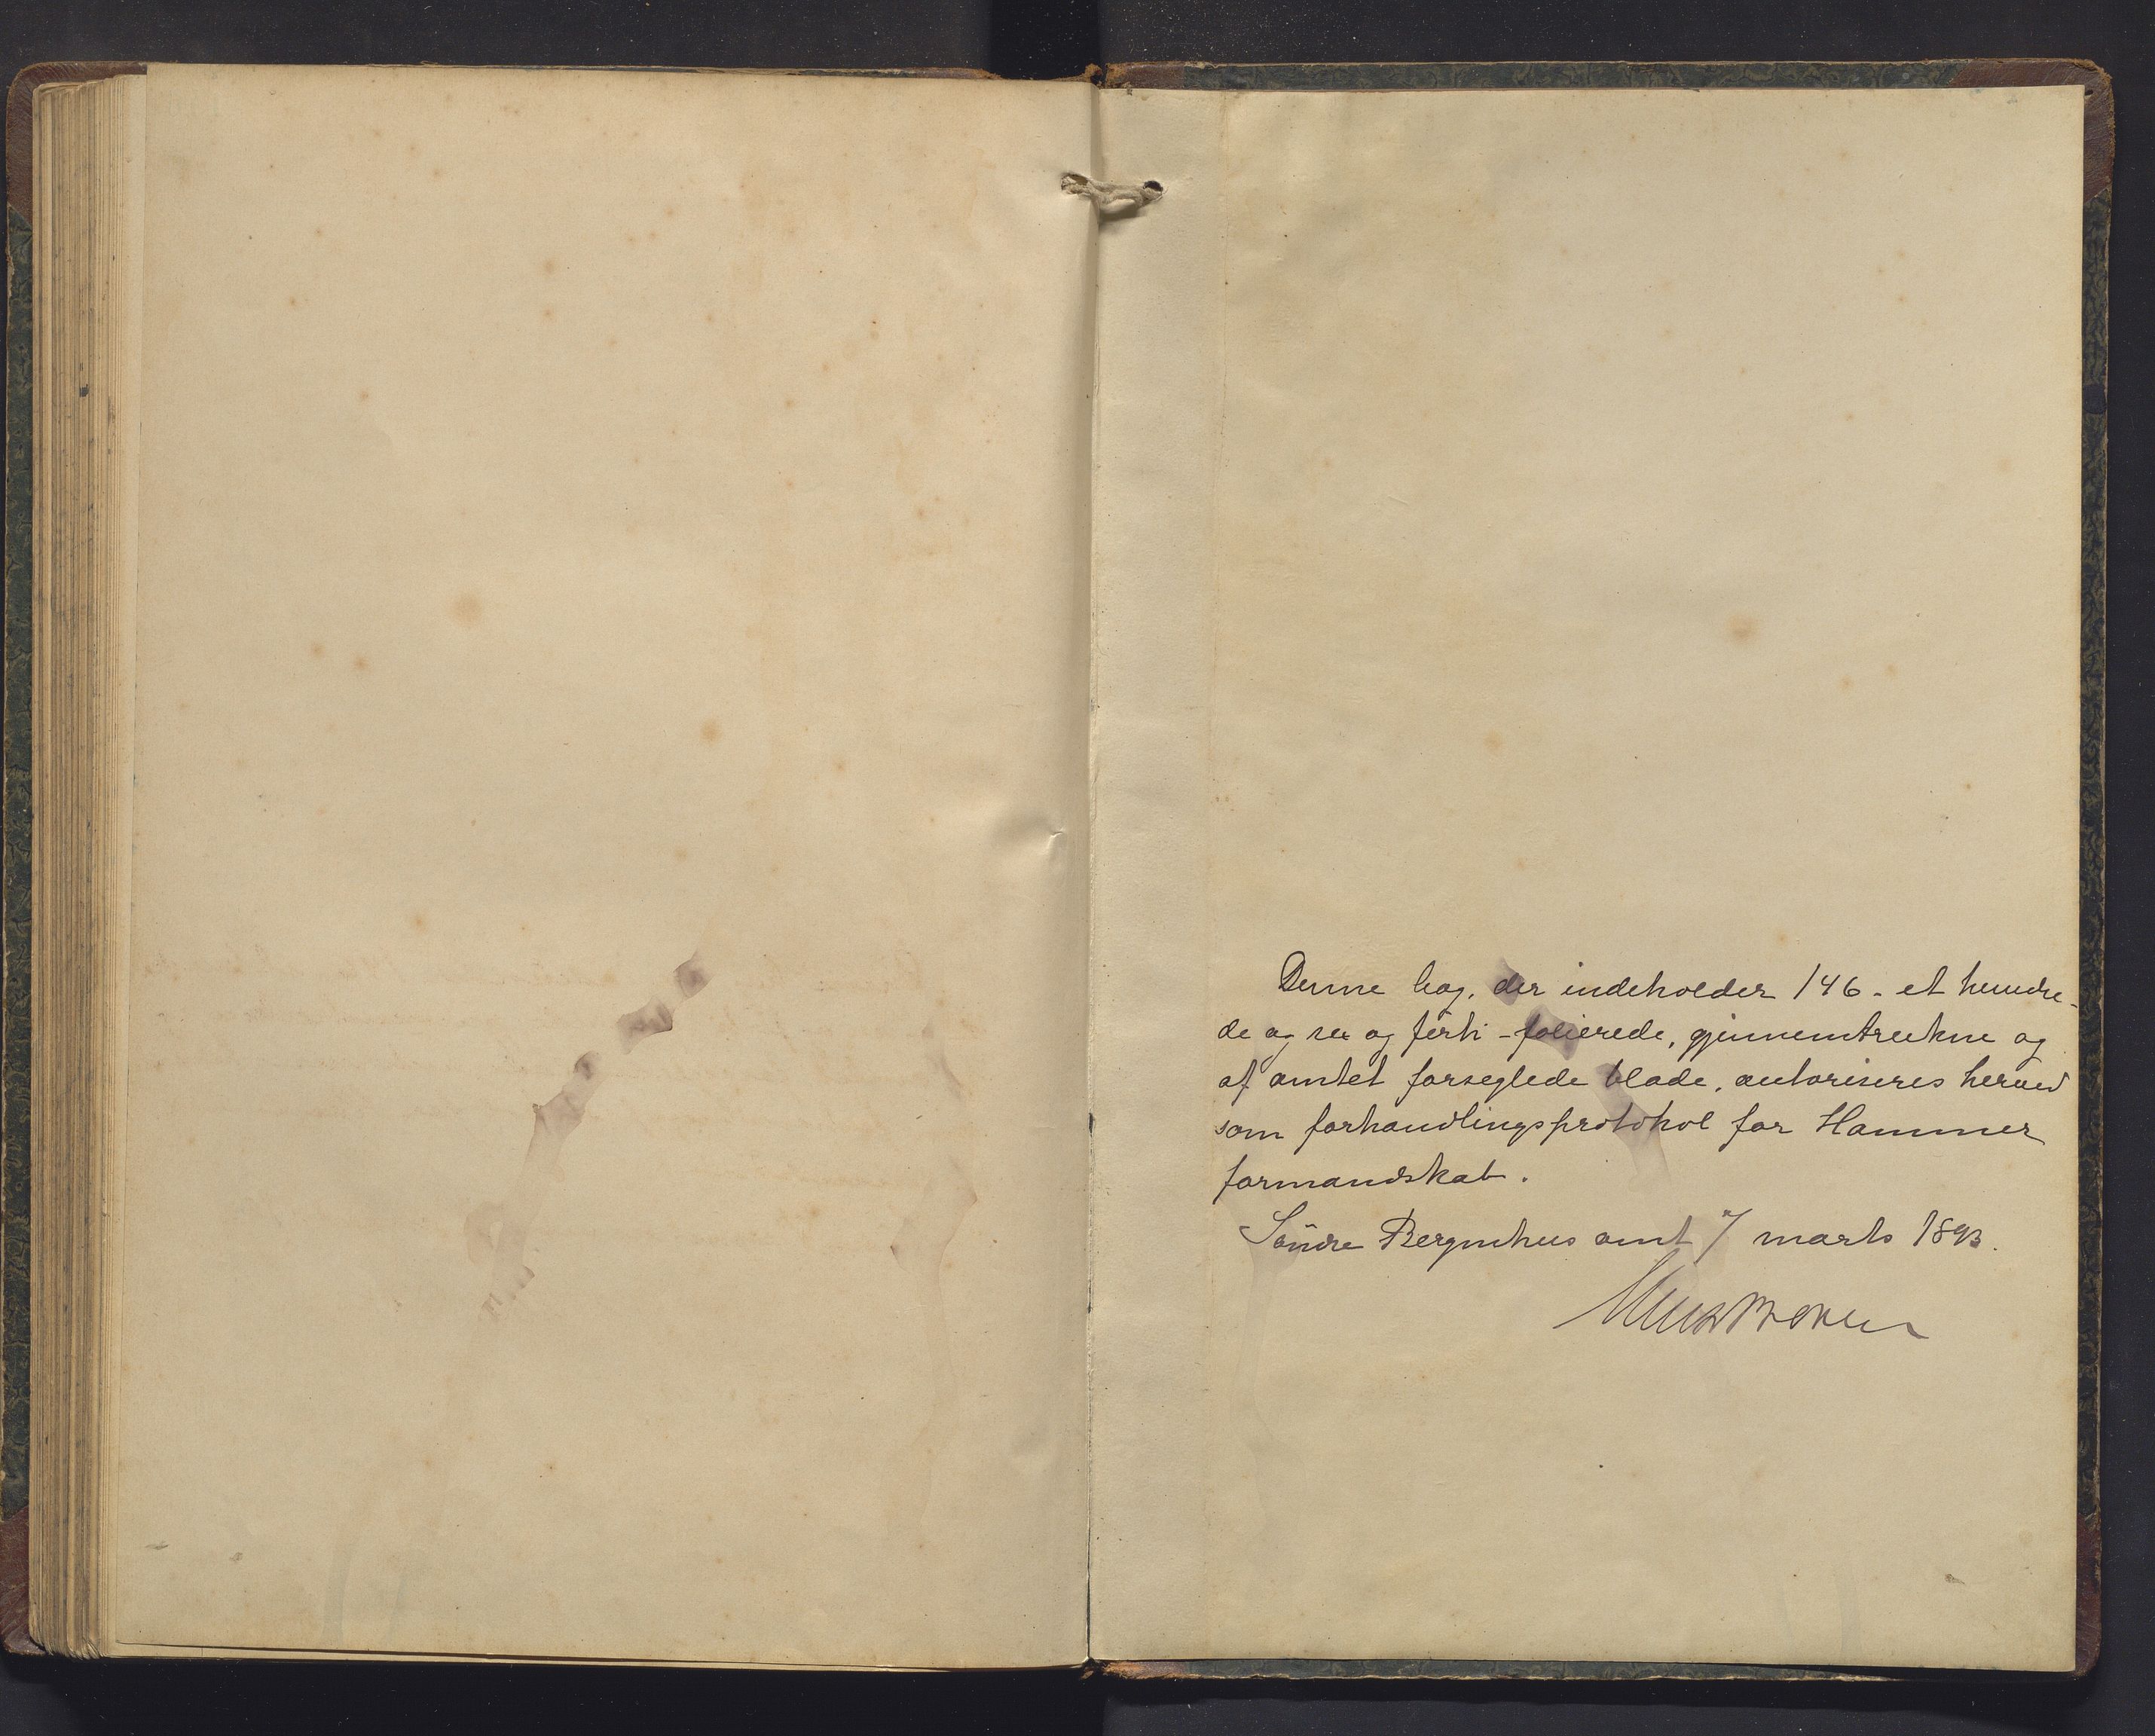 Denne bog, der indeholder 146 - et hundre-
de og sex og førti - folierede, gjennemtrukne og
af amtet forseglede blade, autoriseres herved
som forhandlingsprotokol for Hammer
formandskab.
Søndre Bergenhus amt 7 marts 1893.